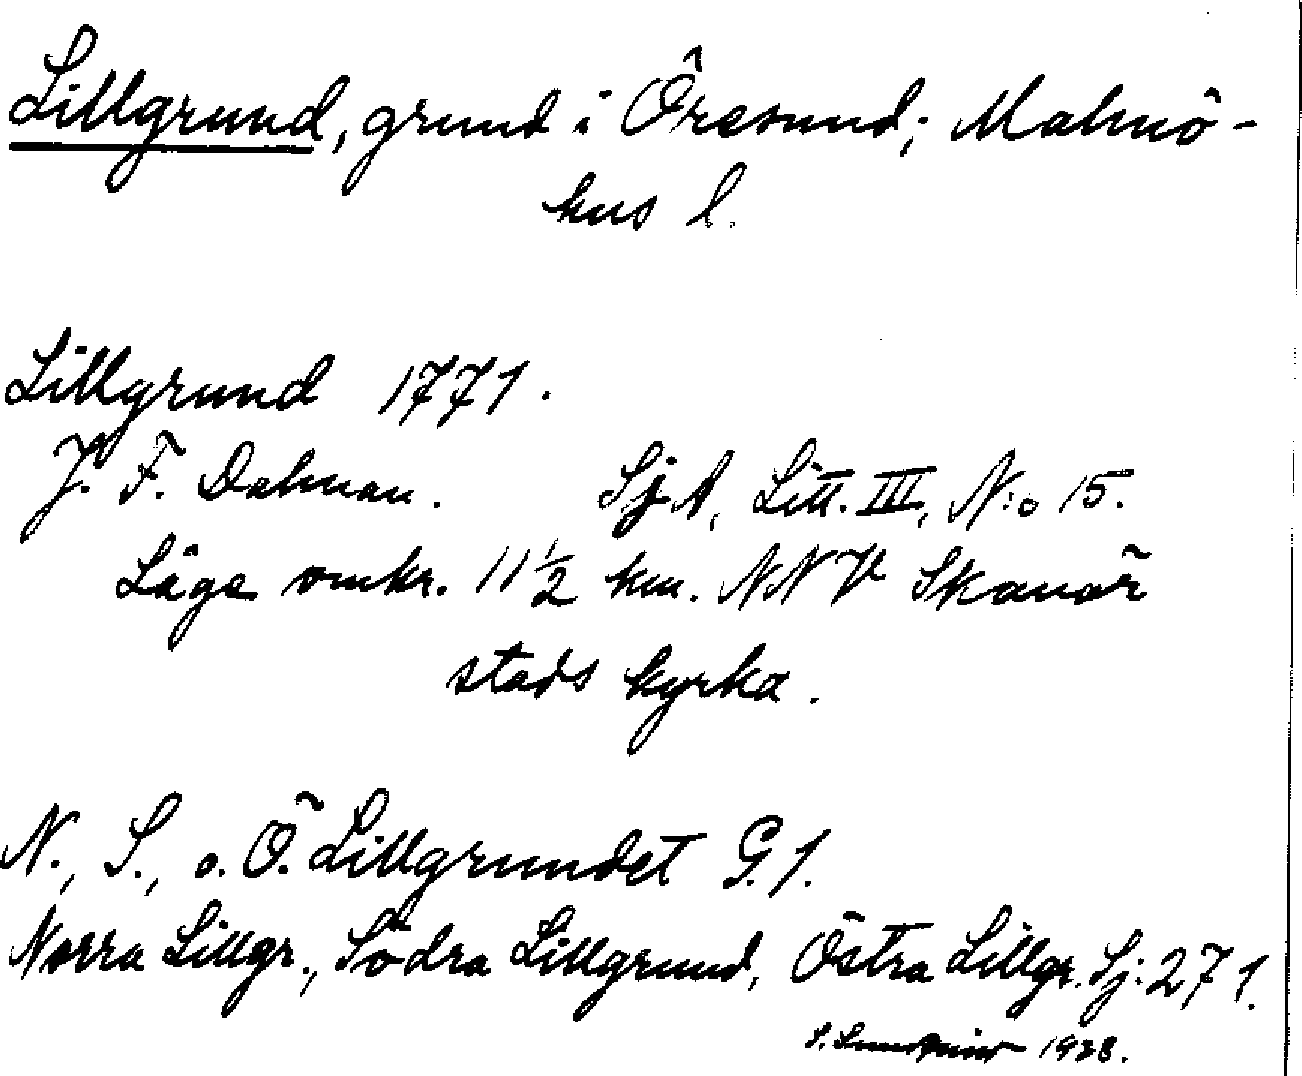 Lillgrund, grund i Öresund; Malmö-
hus l.
Lillgrund 1771.
J. F. Dalman. Sj A, Litt. III, N:o 15.
Läge omkr. 11 1/2 km. NNV Skanör
stads kyrka.
N., S., o. Ö. Lillgrundet G. 1.
Norra Lillgr., Södra Lillgrund, Östra Lillgr. Sj: 271.
S. 1928.